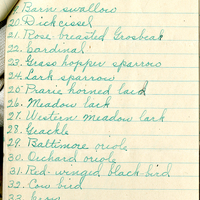 19. Barn swallow
20. Dickcissel
21. Rose-breasted Grosbeak
22. Cardinal
23. Grass hopper sparrow
24. Lark sparrow
25. Prarie horned laid
26. Meadow lark
27. Western meadow lark
28. Grackle
29. Baltimore oriole
30. Orchard oriole
31. Red-winged black-bird
32. Cow bird
33. Crow